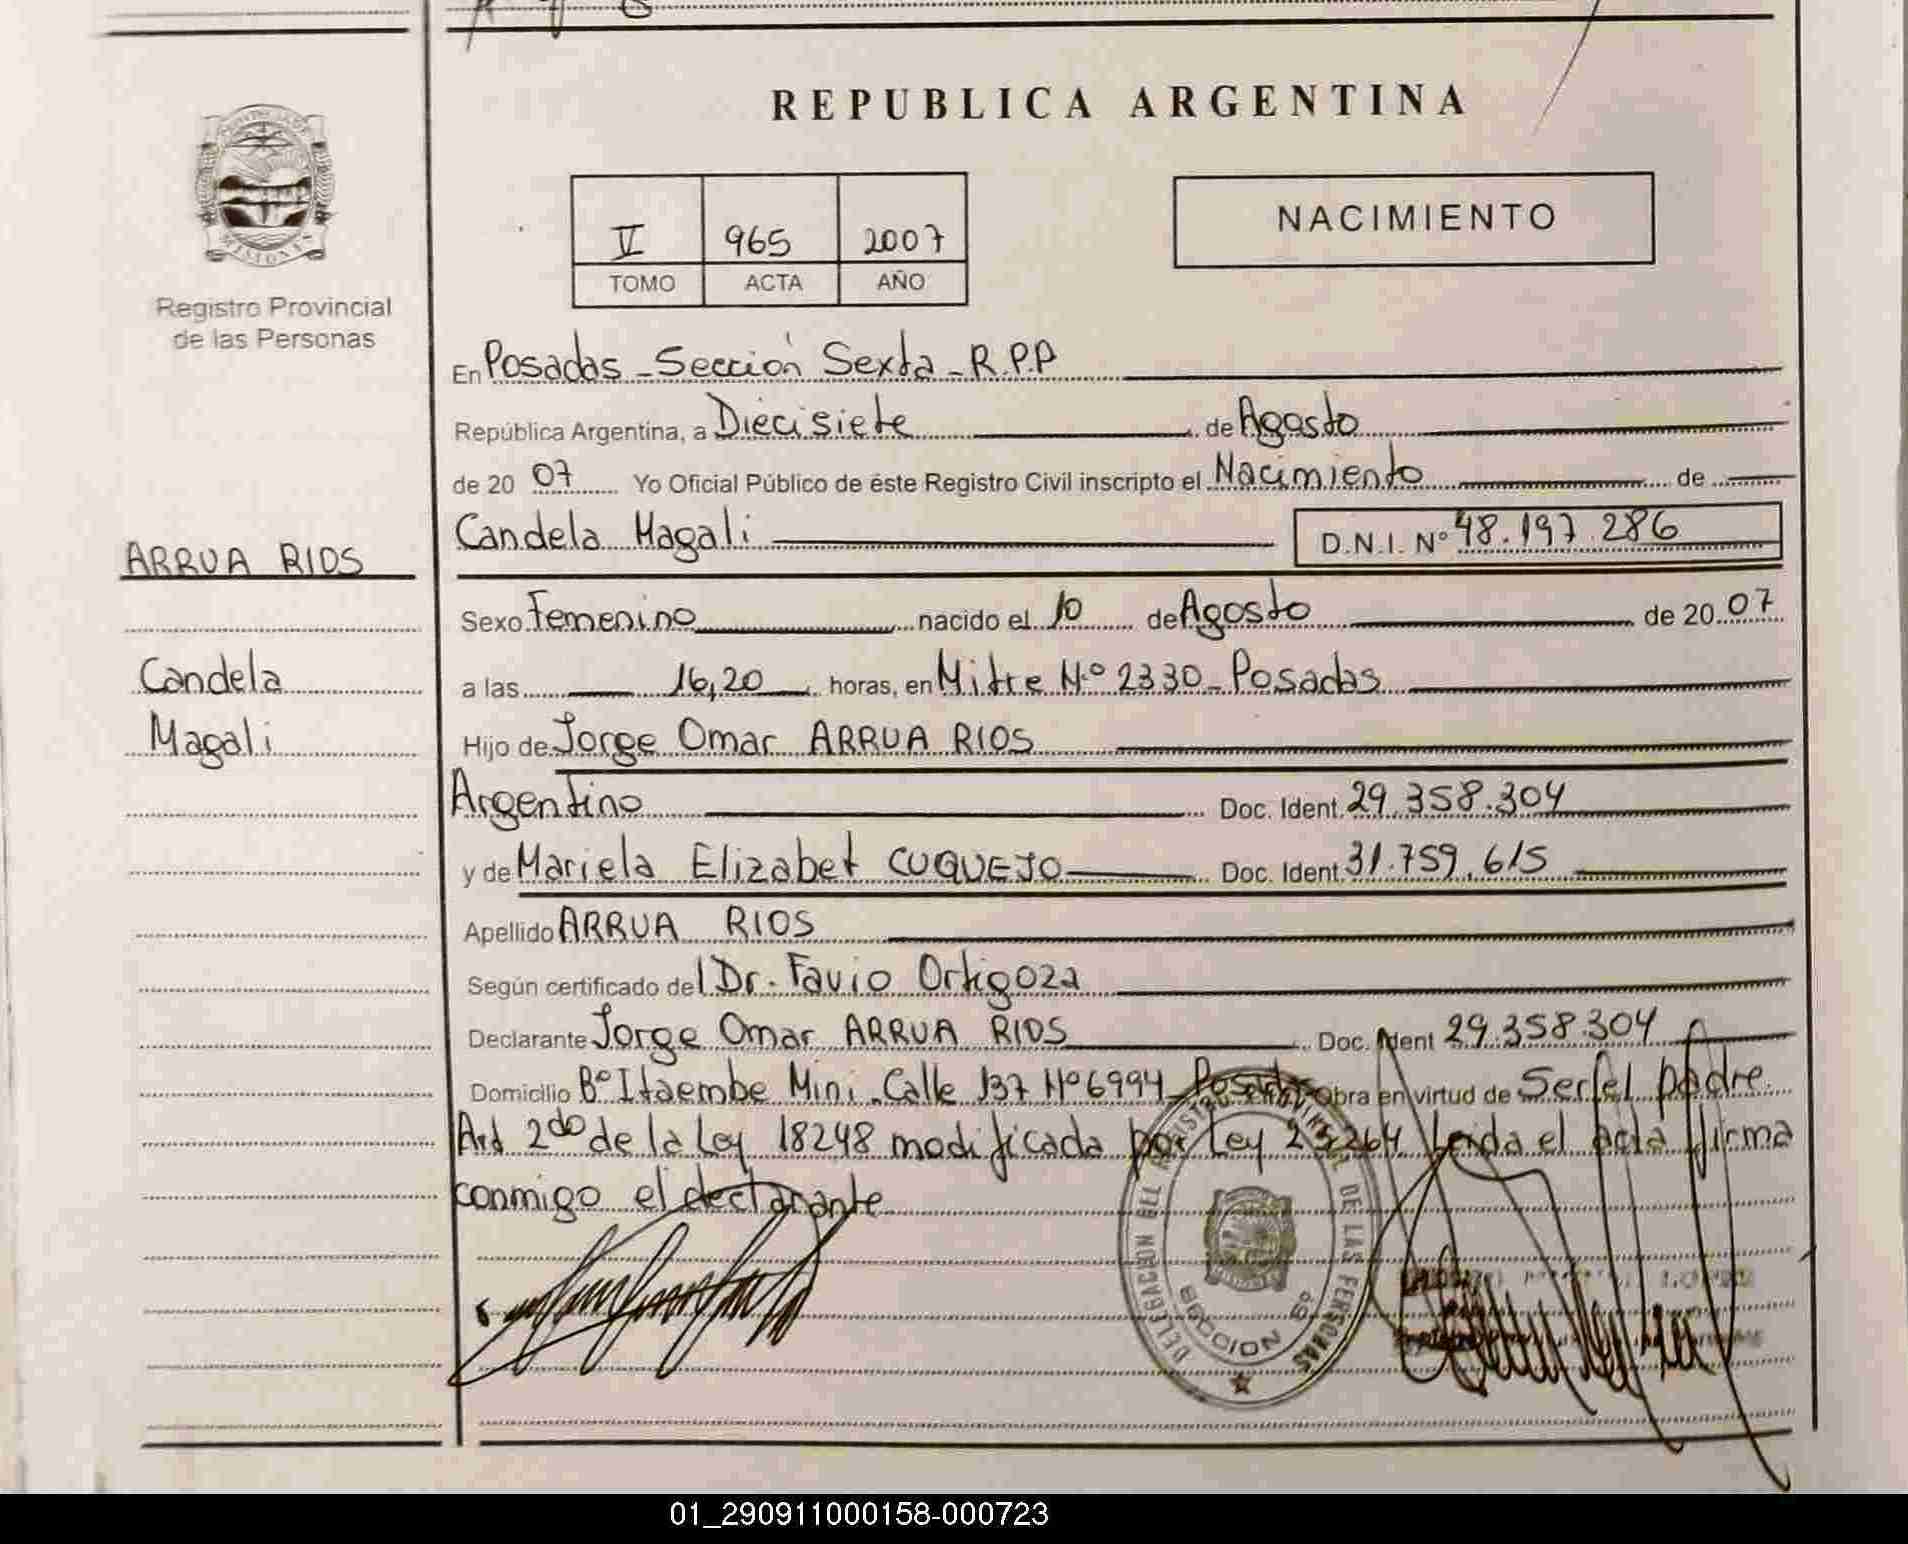 REPUBLICA ARGENTINA
MISIONES
Registro Provincial
de las Personas
V 965 2007
TOMO ACTA AÑO
NACIMIENTO
En Posadas - Sección Sexta - R.P.P
República Argentina, a Diecisiete de Agosto
de 20 07 Yo Oficial Público de éste Registro Civil inscripto el Nacimiento de
Candela Magali D.N.I. Nº 48.197.286
ARRUA RIOS
Candela
Magali
Sexo Femenino nacido el 10 de Agosto de 20 07
a las 16,20 horas, en Mitre Nº 2330 - Posadas
Hijo de Jorge Omar ARRUA RIOS
Argentino Doc. Ident. 29.358.304
y de Mariela Elizabet CUQUEJO Doc. Ident. 31.759.615
Apellido ARRUA RIOS
Según certificado del Dr. Favio Ortigoza
Declarante Jorge Omar ARRUA RIOS Doc. Ident 29.358.304
Domicilio Bº Itaembe Mini - Calle 137 Nº 6994 Posadas Obra en virtud de Ser el padre
Art 2do de la Ley 18248 modificada por Ley 23.264 Leida el acta firma
conmigo el declarante
DELEGACION DEL REGISTRO PROVINCIAL DE LAS PERSONAS
SECCION 6º
01_290911000158-000723